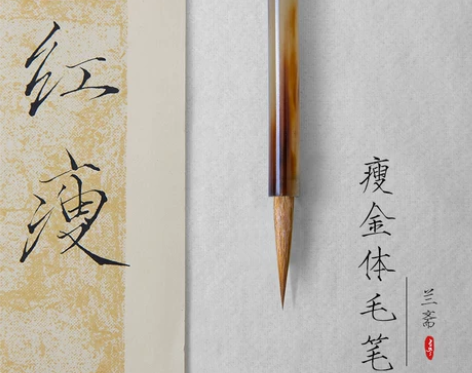 红瘦
瘦金体毛笔
兰斋